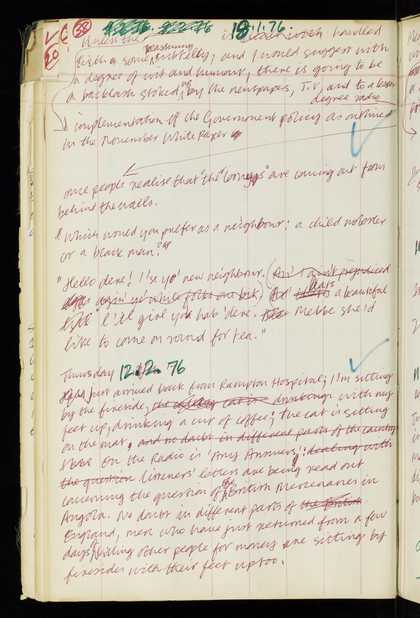 LC 38 9.2.76 18.1.76.
20
Unless the is handled
with some reassuring
tactfully, and I would suggest with
a degree of wit and humour, there is going to be
a backlash stoked, by the newspapers, T.V, and to a lesser
degree radio
implementation of the Government policy as outlined
in the November White Paper
once people realise that the "Looneys" are coming out from
behind the walls.
"Which would you prefer as a neighbour: a child molester
or a black man?"
"Hello dere! I'se yo' new neighbour. (An' I ain't prejudiced
agin' yo' white folks one bit) An' it has a beautiful
I'll give you hab dere. Mebbe she'd
like to come on round for tea."
Thursday 12.2. 76
Just arrived back from Rampton Hospital; I'm sitting
by the fireside, the cat is drinking with my
feet up, drinking a cup of coffee; the cat is sitting
on the mat, and no doubt in different parts of the country
Over on the Radio is 'Any Answers'; dealing with
the question listeners' letters are being read out
concerning the question of the British Mercenaries in
Angola. No doubt in different parts of the British
England, men who have just returned from a few
days killing other people for money are sitting by
firesides with their feet up too.